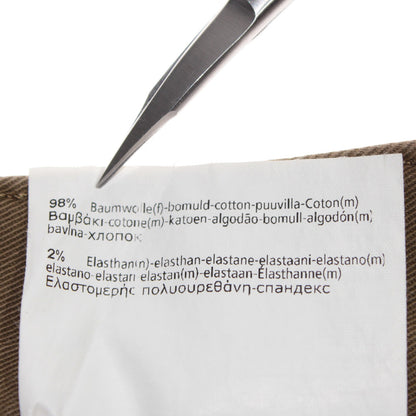 98% Baumwolle(f)-bomuld-cotton-puuvilla-Coton(m)
Βαμβάκι-cotone(m)-katoen-algodão-bomull-algodón(m)
bavlna-хлопок
2% Elasthan(n)-elasthan-elastane-elastaani-elastano(m)
elastano-elastan elastan(m)-elastaan-Élasthanne(m)
Ελαστομερής πολυουρεθάνη-спандекс